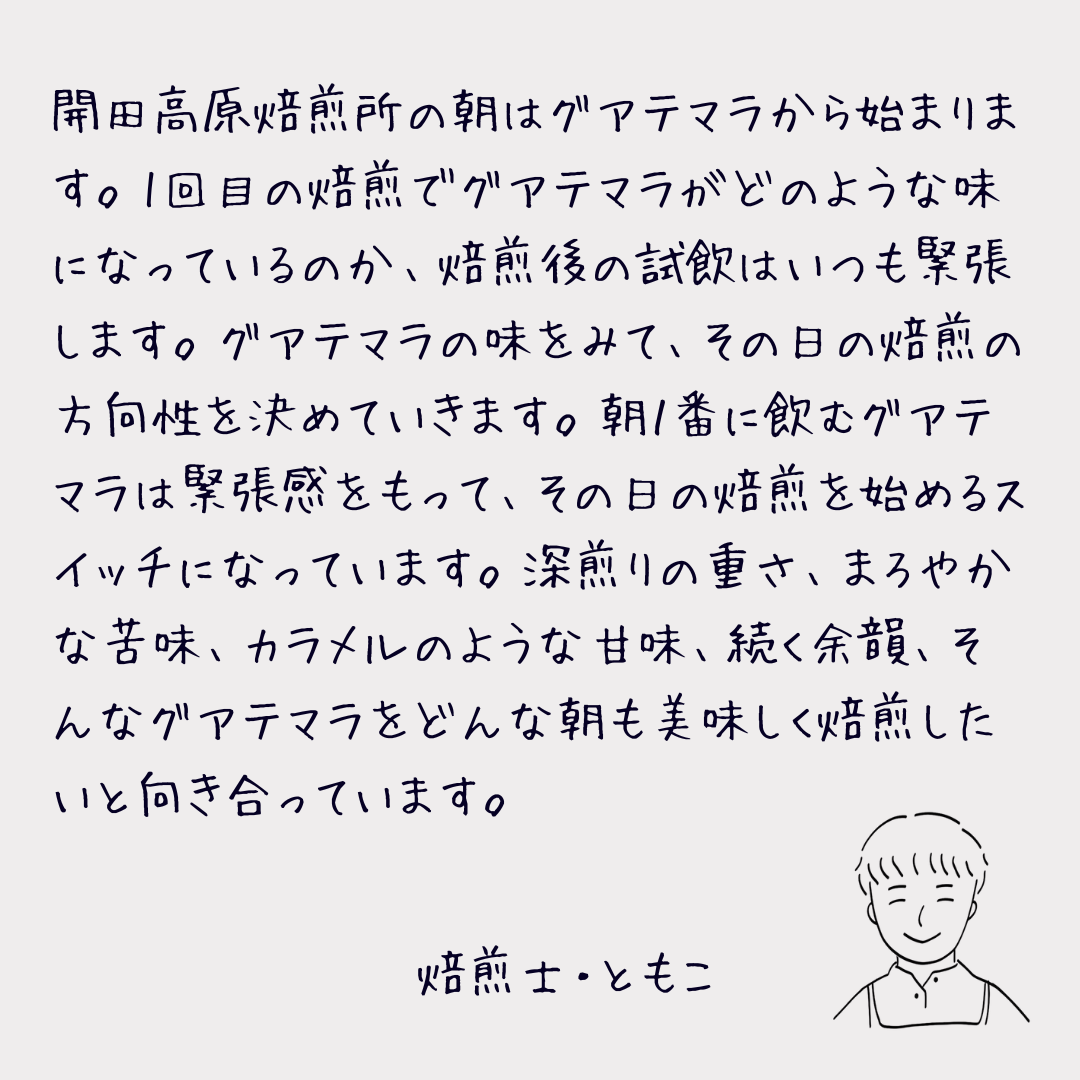 開田高原焙煎所の朝はグアテマラから始まりま
す。1回目の焙煎でグアテマラがどのような味
になっているのか、焙煎後の試飲はいつも緊張
します。グアテマラの味をみて、その日の焙煎の
方向性を決めていきます。朝1番に飲むグアテ
マラは緊張感をもって、その日の焙煎を始めるス
イッチになっています。深煎りの重さ、まろやか
な苦味、カラメルのような甘味、続く余韻、そ
んなグアテマラをどんな朝も美味しく焙煎した
いと向き合っています。
焙煎士・ともこ